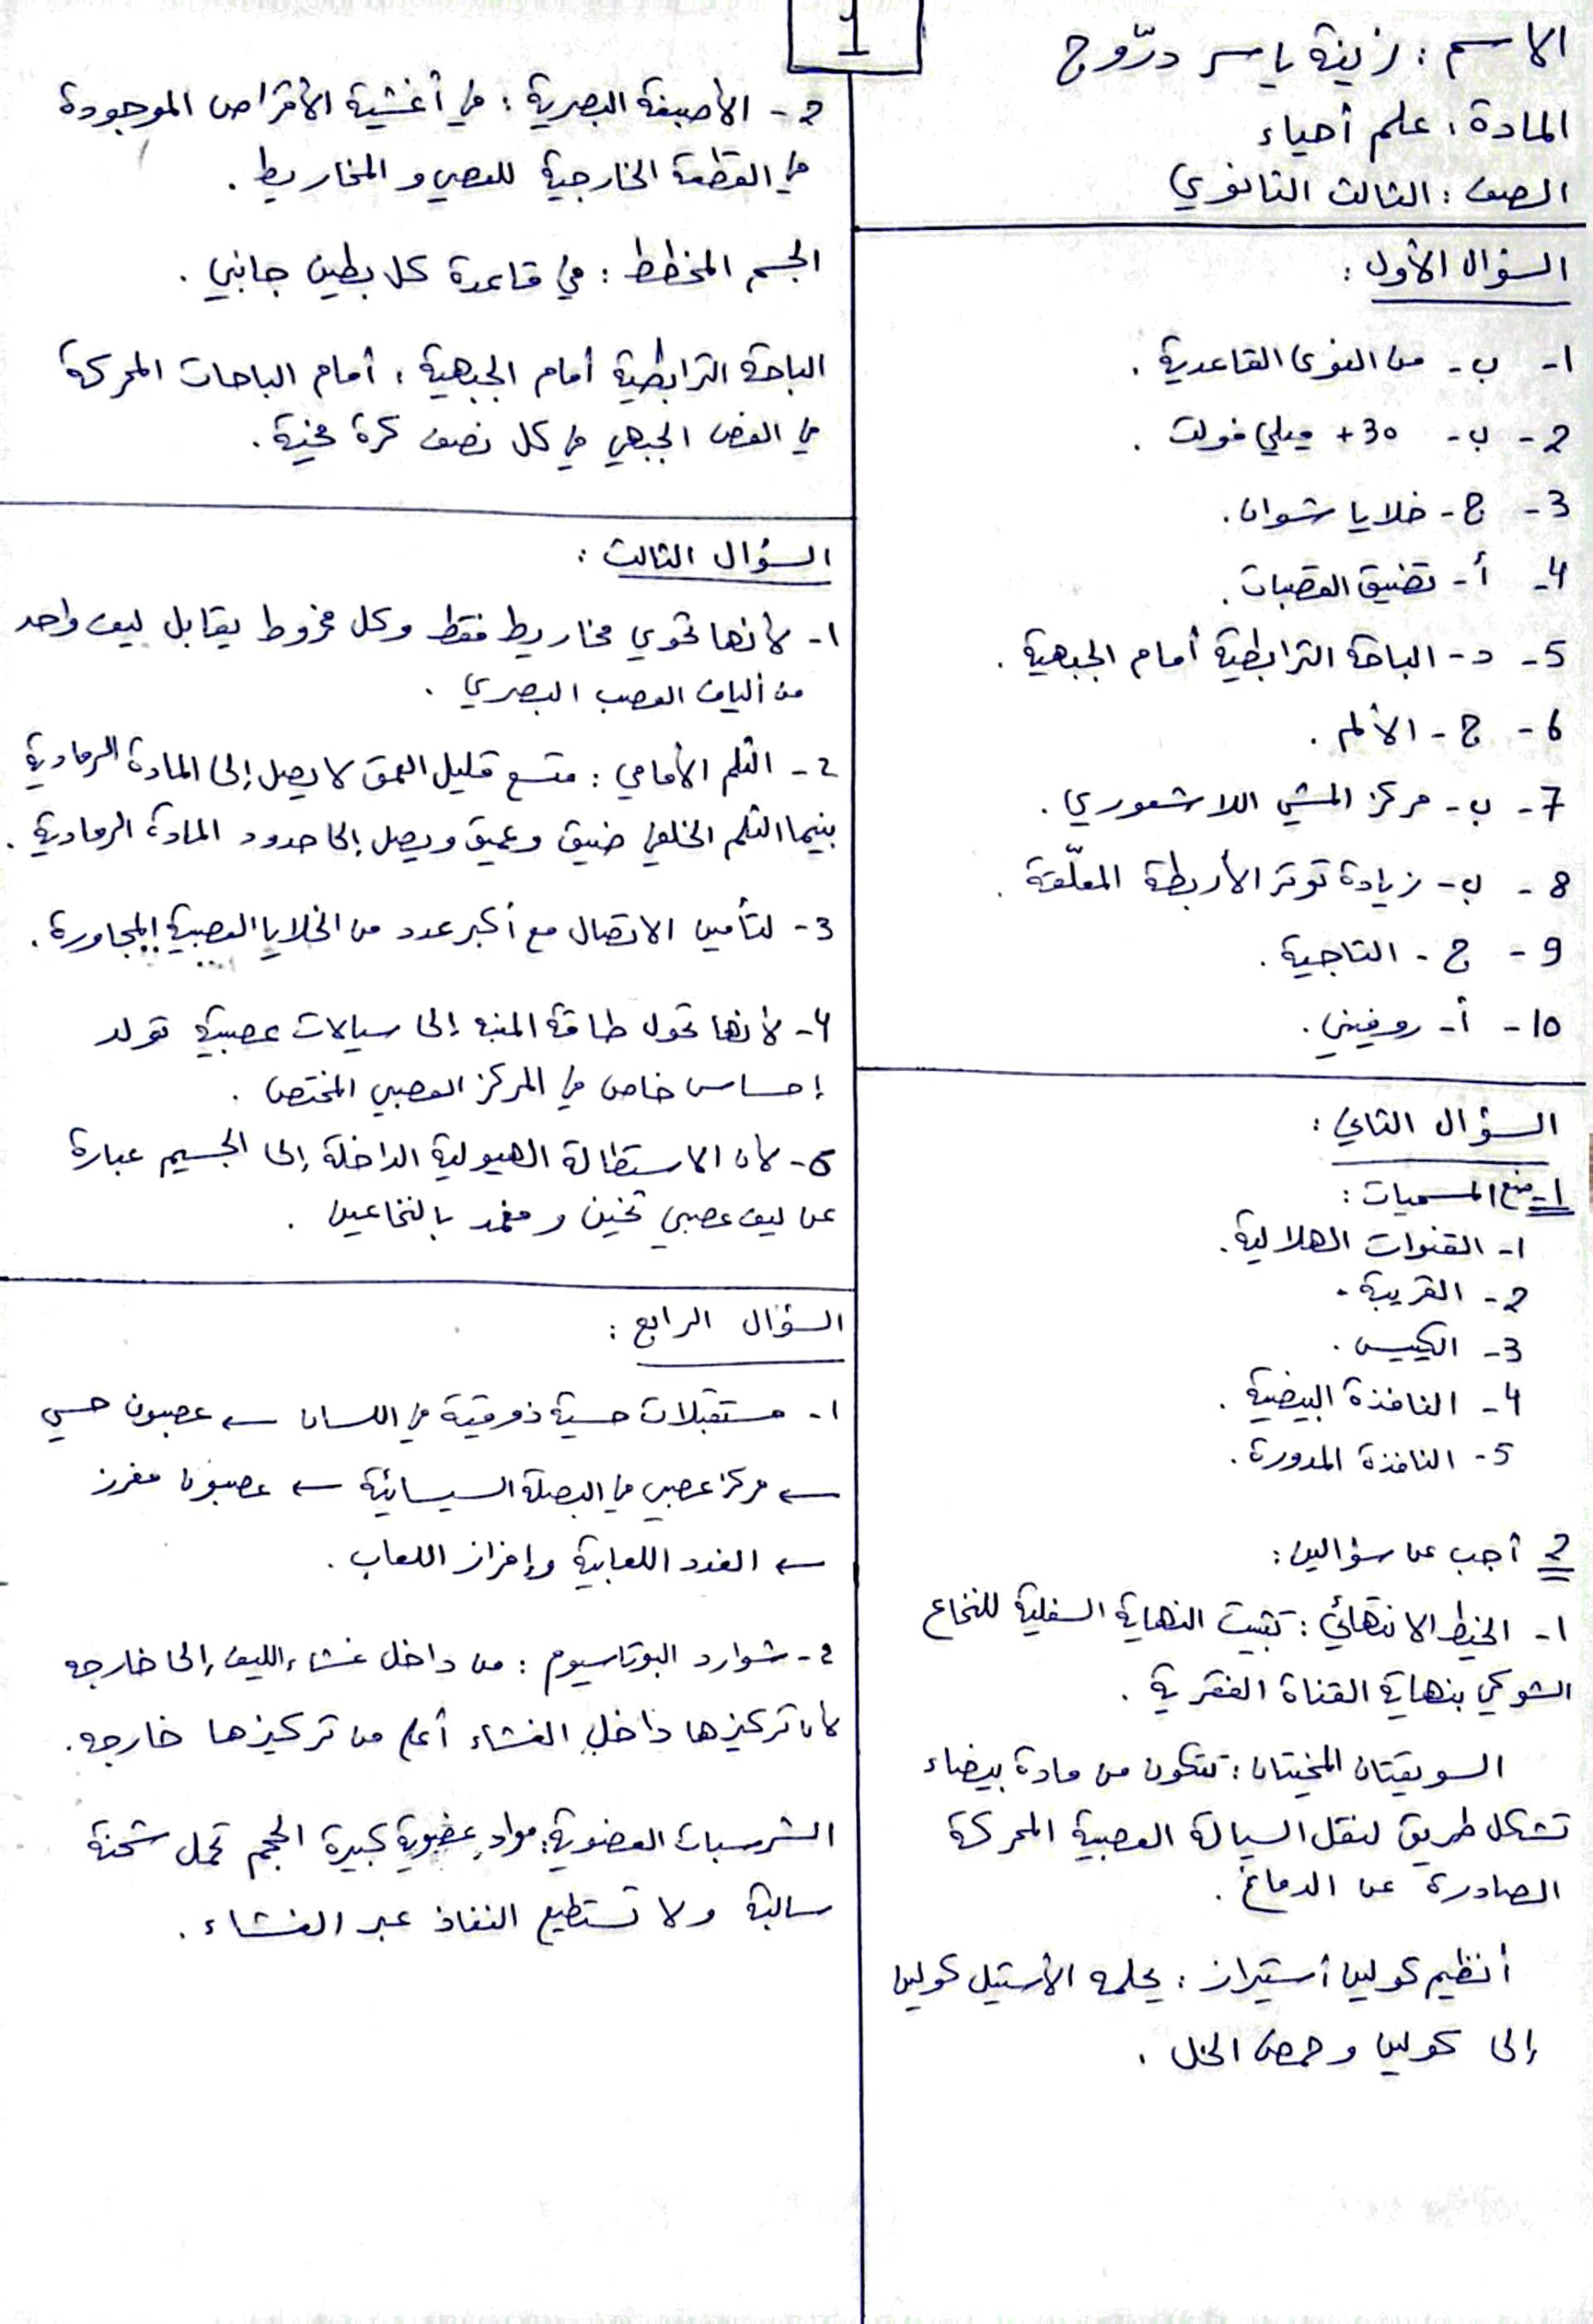 1
الاسم : زينة ياسر درّوج
المادة : علم أحياء
الصف : الثالث الثانوي
السؤال الأول :
1- ب- من النوى القاعدية .
2- ب- +30 ميلي فولت .
3- ج- خلايا شوان .
4- أ- تضيق القصبات .
5- د- الباحة الترابطية أمام الجبهية .
6- ج- الألم .
7- ب- مركز المشي اللاشعوري .
8- ب- زيادة توتر الأربطة المعلّقة .
9- ج- التاجية .
10- أ- روفيني .
السؤال الثاني :
1- ضع المسميات :
1- القنوات الهلالية .
2- القريبة .
3- الكييس .
4- النافذة البيضية .
5- النافذة المدورة .
2 أجب عن سؤالين :
1- الخيط الانتهائي : تثبيت النهاية السفلية للنخاع
الشوكي بنهاية القناة الفقرية .
السويقتان المخيتان : تتكون من مادة بيضاء
تشكل طريق لنقل السيالة العصبية المحركة
الصادرة عن الدماغ .
أنظيم كولين أستيراز : يحلمه الأستيل كولين
إلى كولين وحمض الخل .
2- الأصبغة البصرية : في أغشية الأقراص الموجودة
في القطعة الخارجية للعصي و المخاريط .
الجسم المخطط : في قاعدة كل بطين جانبي .
الباحة الترابطية أمام الجبهية : أمام الباحات المحركة
في الفص الجبهي في كل نصف كرة مخية .
السؤال الثالث :
1- لأنها تحوي مخاريط فقط وكل مخروط يقابل ليف واحد
من ألياف العصب البصري .
2- الثلم الأمامي : متسع قليل العمق لا يصل إلى المادة الرمادية
بينما الثلم الخلفي ضيق وعميق ويصل إلى حدود المادة الرمادية .
3- لتأمين الاتصال مع أكبر عدد من الخلايا العصبية المجاورة .
4- لأنها تحول طاقة المنبه إلى سيالات عصبية تولد
إحساس خاص في المركز العصبي المختص .
5- لأن الاستطالة الهيولية الداخلة إلى الجسيم عبارة
عن ليف عصبي ثخين ومغمد بالنخاعين .
السؤال الرابع :
1- مستقبلات حسية ذوقية في اللسان ← عصبون حسي
← مركز عصبي في البصلة السيسائية ← عصبون مفرز
← الغدد اللعابية وإفراز اللعاب .
2- شوارد البوتاسيوم : من داخل غشاء الليف إلى خارجه
لأن تركيزها داخل الغشاء أعلى من تركيزها خارجه .
الشرسبات العضوية : مواد عضوية كبيرة الحجم تحمل شحنة
سالبة ولا تستطيع النفاذ عبر الغشاء .